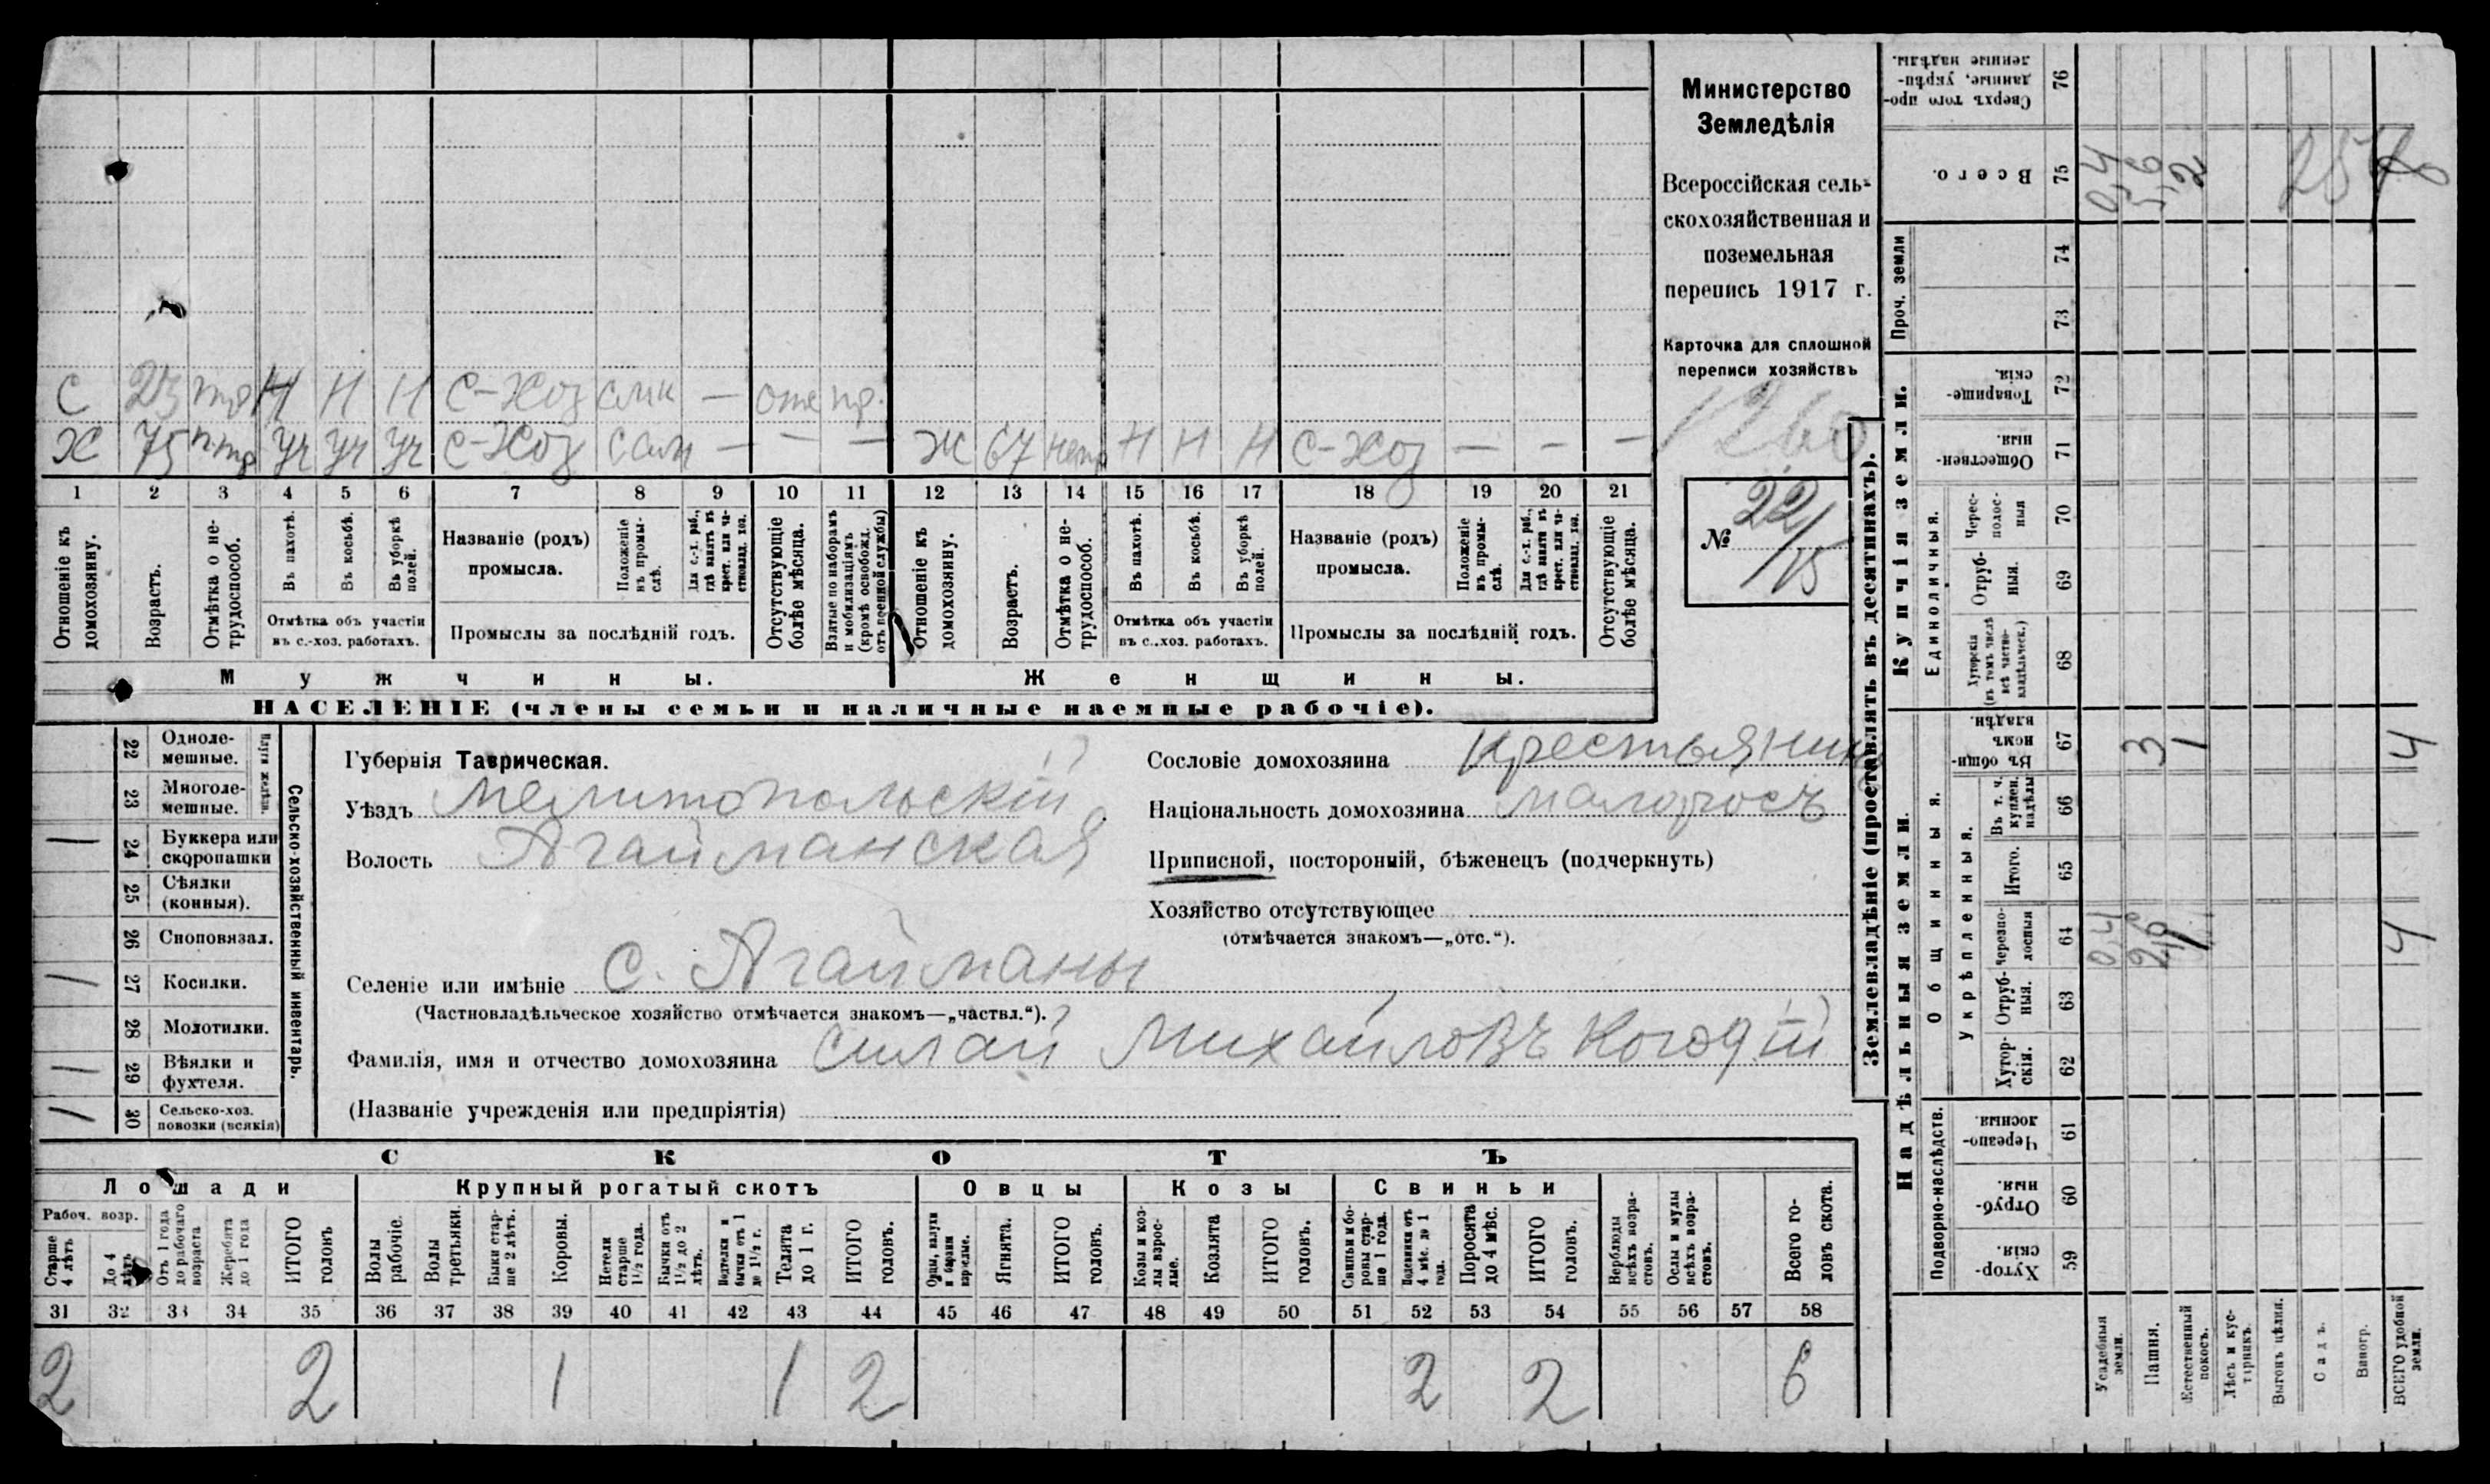 С 23 тр Н Н Н С-Хоз — отс пр.
Х 75 Уч Уч Уч С-Хоз Сам — — — Ж 67 Н Н Н С-Хоз — — —
1 2 3 4 5 6 7 8 9 10 11 12 13 14 15 16 17 18 19 20 21
Отношеніе къ домохозяину.
Возрастъ.
Отмѣтка о нетрудоспособ.
Въ пахотѣ.
Въ косьбѣ.
Въ уборкѣ полей.
Отмѣтка объ участіи
въ с.-хоз. работахъ.
Названіе (родъ)
промысла.
Положеніе въ промыслѣ.
Для с.-х. раб., гдѣ занятъ въ крест. или частновлад. хоз.
Промыслы за послѣдній годъ.
Отсутствующіе болѣе мѣсяца.
Взятые по наборамъ и мобилизаціямъ (кромѣ освобожд. отъ военной службы)
Отношеніе къ домохозяину.
Возрастъ.
Отмѣтка о нетрудоспособ.
Въ пахотѣ.
Въ косьбѣ.
Въ уборкѣ полей.
Отмѣтка объ участіи
въ с..хоз. работахъ.
Названіе (родъ)
промысла.
Положеніе въ промыслѣ.
Для с.-х. раб., гдѣ занята въ крест. или частновлад. хоз.
Промыслы за послѣдній годъ.
Отсутствующіе болѣе мѣсяца.
Мужчины.
Женщины.
НАСЕЛЕНІЕ (члены семьи и наличные наемные рабочіе).
Министерство
Земледѣлія
Всероссійская сель-
скохозяйственная и
поземельная
перепись 1917 г.
Карточка для сплошной
переписи хозяйствъ
1260
№ 22/15
22 Однолемешные.
23 Многолемешные.
Плуги желѣзн.
24 Буккера или скоропашки 1
25 Сѣялки (конныя).
26 Сноповязал.
27 Косилки. 1
28 Молотилки.
29 Вѣялки и фухтеля. 1
30 Сельско-хоз. повозки (всякія) 1
Сельско-хозяйственный инвентарь.
Губернія Таврическая.
Уѣздъ Мелитопольскій
Волость Агайманская
Селеніе или имѣніе с. Агайманы
(Частновладѣльческое хозяйство отмѣчается знакомъ—„частвл.“).
Фамилія, имя и отчество домохозяина Силай Михайловъ
(Названіе учрежденія или предпріятія)
Сословіе домохозяина крестьянинъ
Національность домохозяина малоросъ
Приписной, посторонній, бѣженецъ (подчеркнуть)
Хозяйство отсутствующее
(отмѣчается знакомъ—„отс.“).
СКОТЪ
Лошади Крупный рогатый скотъ Овцы Козы Свиньи
Рабоч. возр.
Старше 4 лѣтъ
До 4 лѣтъ
Отъ 1 года до рабочаго возраста
Жеребята до 1 года
ИТОГО головъ
Волы рабочіе.
Волы третьяки.
Быки старше 2 лѣтъ.
Коровы.
Нетели старше 1½ года.
Бычки отъ 1½ до 2 лѣтъ.
Подтелки и бычки отъ 1 до 1½ г.
Телята до 1 г.
ИТОГО головъ.
Овцы, валухи и бараны взрослые.
Ягнята.
ИТОГО головъ.
Козы и козлы взрослые.
Козлята
ИТОГО головъ.
Свиньи и боровы старше 1 года.
Подсвинки отъ 4 мѣс. до 1 года.
Поросята до 4 мѣс.
ИТОГО головъ.
Верблюды всѣхъ возрастовъ.
Ослы и мулы всѣхъ возрастовъ.
Всего головъ скота.
31 32 33 34 35 36 37 38 39 40 41 42 43 44 45 46 47 48 49 50 51 52 53 54 55 56 57 58
2 2 1 1 2 2 2 6
Землевладѣніе (проставлять въ десятинахъ).
Надѣльныя земли.
Купчія земли.
Проч. земли
Подворно-наслѣдств.
Общинныя.
Укрѣпленныя.
Единоличныя.
Сверхъ того проданные, укрѣпленные надѣлы. 76
Всего. 75 0,4 5,6 2
74
73
Товарищескія. 72
Общественныя. 71
Чересполосныя 70
Отрубныя. 69
Хуторскія (въ томъ числѣ всѣ частновладѣльческ.) 68
Въ общинномъ владѣн. 67 3 1 4
Въ т. ч. куплен. надѣлы 66
Итого. 65
Черезполосныя 64 0,4 2,6 1 4
Отрубныя. 63
Хуторскія. 62
Черезполосныя 61
Отрубныя. 60
Хуторскія. 59
Усадебныя земли.
Пашня.
Естественный покосъ.
Лѣсъ и кустарникъ.
Выгонъ цѣлин.
Садъ.
Виногр.
ВСЕГО удобной земли.